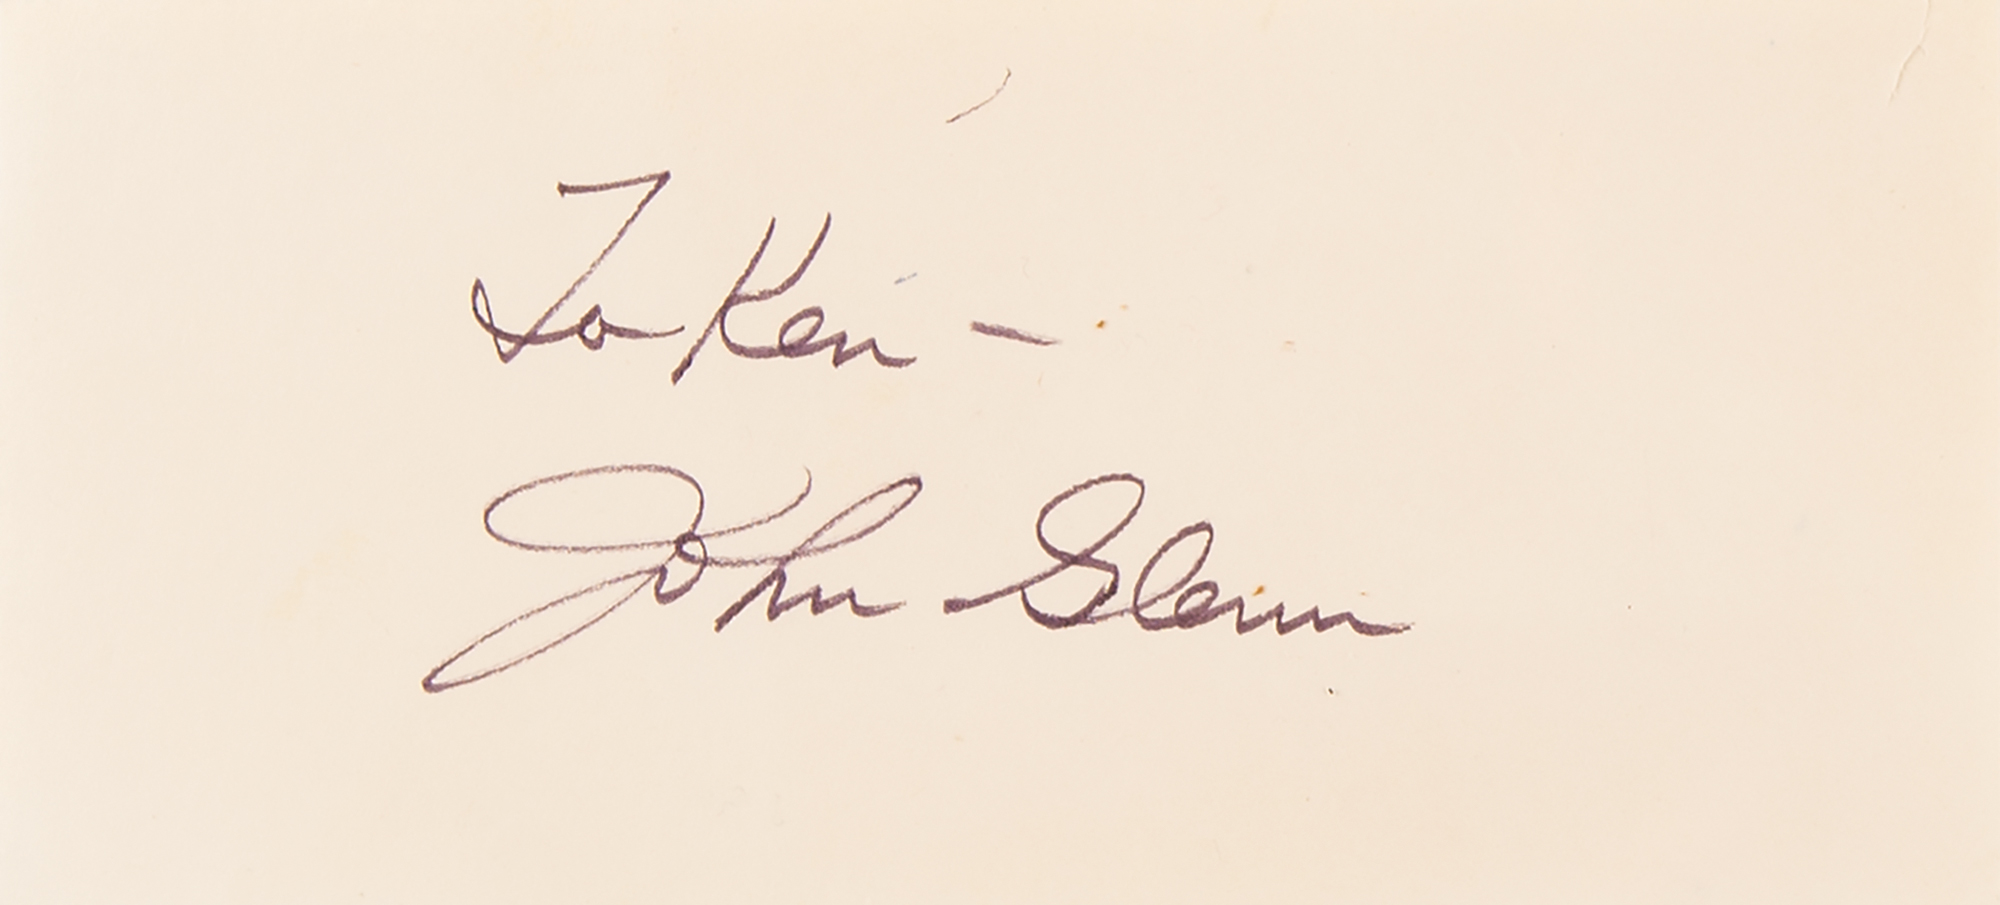 To Ken —
John Glenn